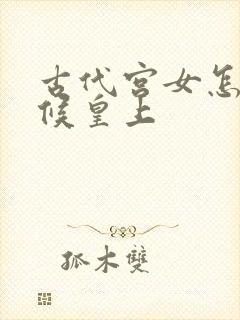 古代宫女怎
候皇上
孤木雙